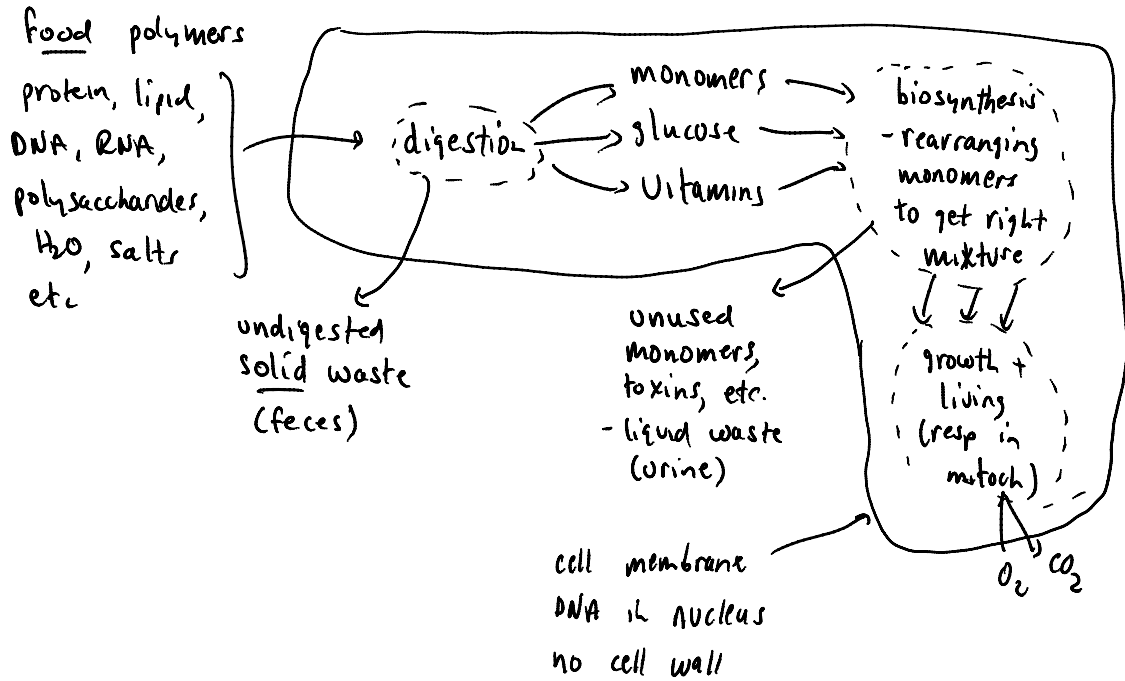 food polymers
protein, lipid,
DNA, RNA,
polysaccharides,
H₂O, salts
etc
digestion
monomers
glucose
vitamins
biosynthesis
- rearranging
monomers
to get right
mixture
undigested
solid waste
(feces)
unused
monomers,
toxins, etc.
- liquid waste
(urine)
growth +
living
(resp in
mitoch)
O₂ CO₂
cell membrane
DNA in nucleus
no cell wall